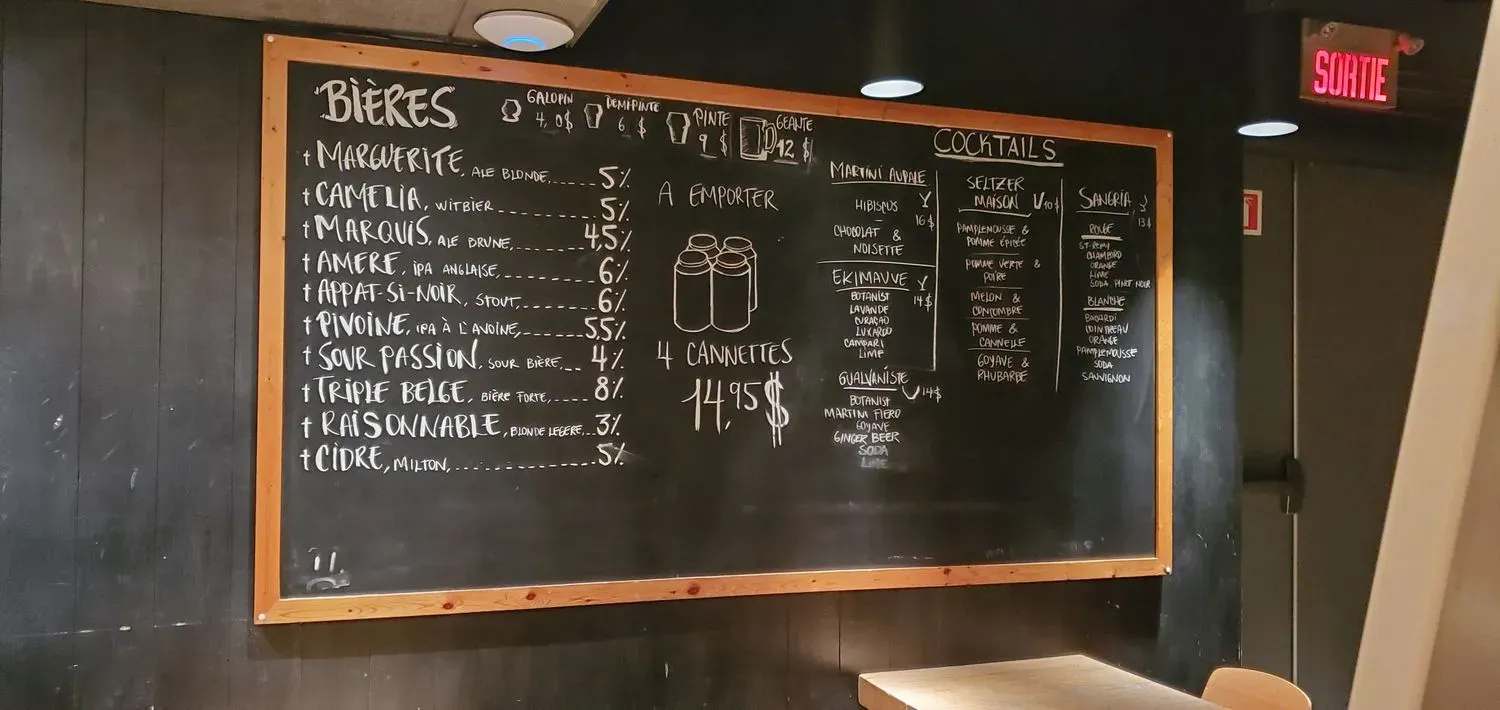 BIÈRES
GALOPIN
4,0$
DEMI-PINTE
6 $
PINTE
9 $
GÉANTE
12 $
† MARGUERITE, ALE BLONDE,.....5%
† CAMELIA, WITBIER ---------- 5%
† MARQUIS, ALE BRUNE,-------4,5%
† AMERE, IPA ANGLAISE,-------- 6%
† APPAT-SI-NOIR, STOUT,------ 6%
† PIVOINE, IPA À L'AVOINE,------5,5%
† SOUR PASSION, SOUR BIÈRE,-- 4%
† TRIPLE BELGE, BIÈRE FORTE,---- 8%
† RAISONNABLE, BLONDE LEGERE,..3%
† CIDRE, MILTON,..............5%
A EMPORTER
4 CANNETTES
14,95$
COCKTAILS
MARTINI AUPALE
HIBISCUS
16$
CHOCOLAT &
NOISETTE
EKIMAUVE
14$
BOTANIST
LAVANDE
CURAÇAO
LUXARDO
CAMPARI
LIME
GUALVANISTE
14$
BOTANIST
MARTINI FIERO
GOYAVE
GINGER BEER
SODA
LIME
SELTZER
MAISON 10$
PAMPLEMOUSSE &
POMME ÉPICÉE
POMME VERTE &
POIRE
MELON &
CONCOMBRE
POMME &
CANNELLE
GOYAVE &
RHUBARBE
SANGRIA
13$
ROUGE
ST-REMY
CHAMBORD
ORANGE
LIME
SODA, PINOT NOIR
BLANCHE
BACARDI
COINTREAU
ORANGE
PAMPLEMOUSSE
SODA
SAUVIGNON
SORTIE